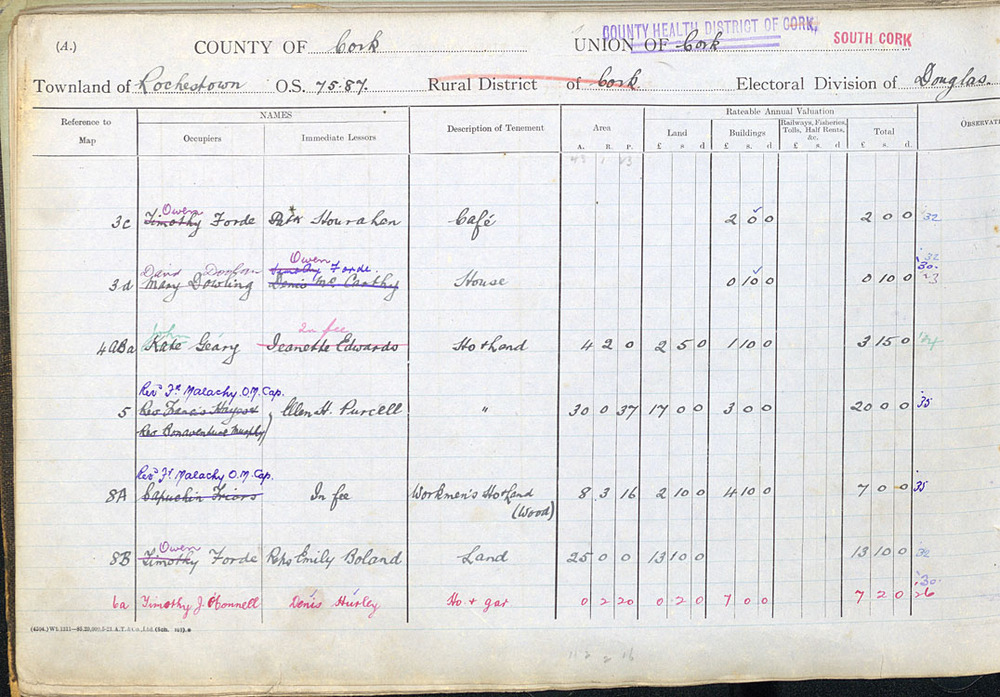 COUNTY HEALTH DISTRICT OF CORK,
SOUTH CORK
(A.) COUNTY OF Cork UNION OF Cork
Townland of Rochestown O.S. 75.87. Rural District of Cork Electoral Division of Douglas.
Rateable Annual Valuation
Reference to Map NAMES Description of Tenement Area Land Buildings Railways, Fisheries, Tolls, Half Rents, &c. Total OBSERVATI
Occupiers Immediate Lessors
A. R. P. £ s d £ s. d £ s. d £ s. d.
43 1 23
Owen
3c Timothy Forde Hourahan Café 2 0 0 2 0 0 32
Owen 32
David Timothy Forde. 30.
3d Mary Dowling Denis McCarthy House 0 10 0 0 10 0 23
John In fee
4ABa Kate Geary Jeanette Edwards Ho & land 4 2 0 2 5 0 1 10 0 3 15 0
Revd Fr Malachy O.M. Cap.
5 Rev Francis Ellen H. Purcell " 30 0 37 17 0 0 3 0 0 20 0 0 35
Rev Bonaventure Murphy
Revd Fr Malachy O.M. Cap.
8A Capuchin Friars In fee Workmen's Ho & land 8 3 16 2 10 0 4 10 0 7 0 0 35
(Wood)
Owen
8B Timothy Forde Reps Emily Boland Land 25 0 0 13 10 0 13 10 0 32
30.
6a Timothy J. O'Connell Denis Hurley Ho + gar 0 2 20 0 2 0 7 0 0 7 2 0 26